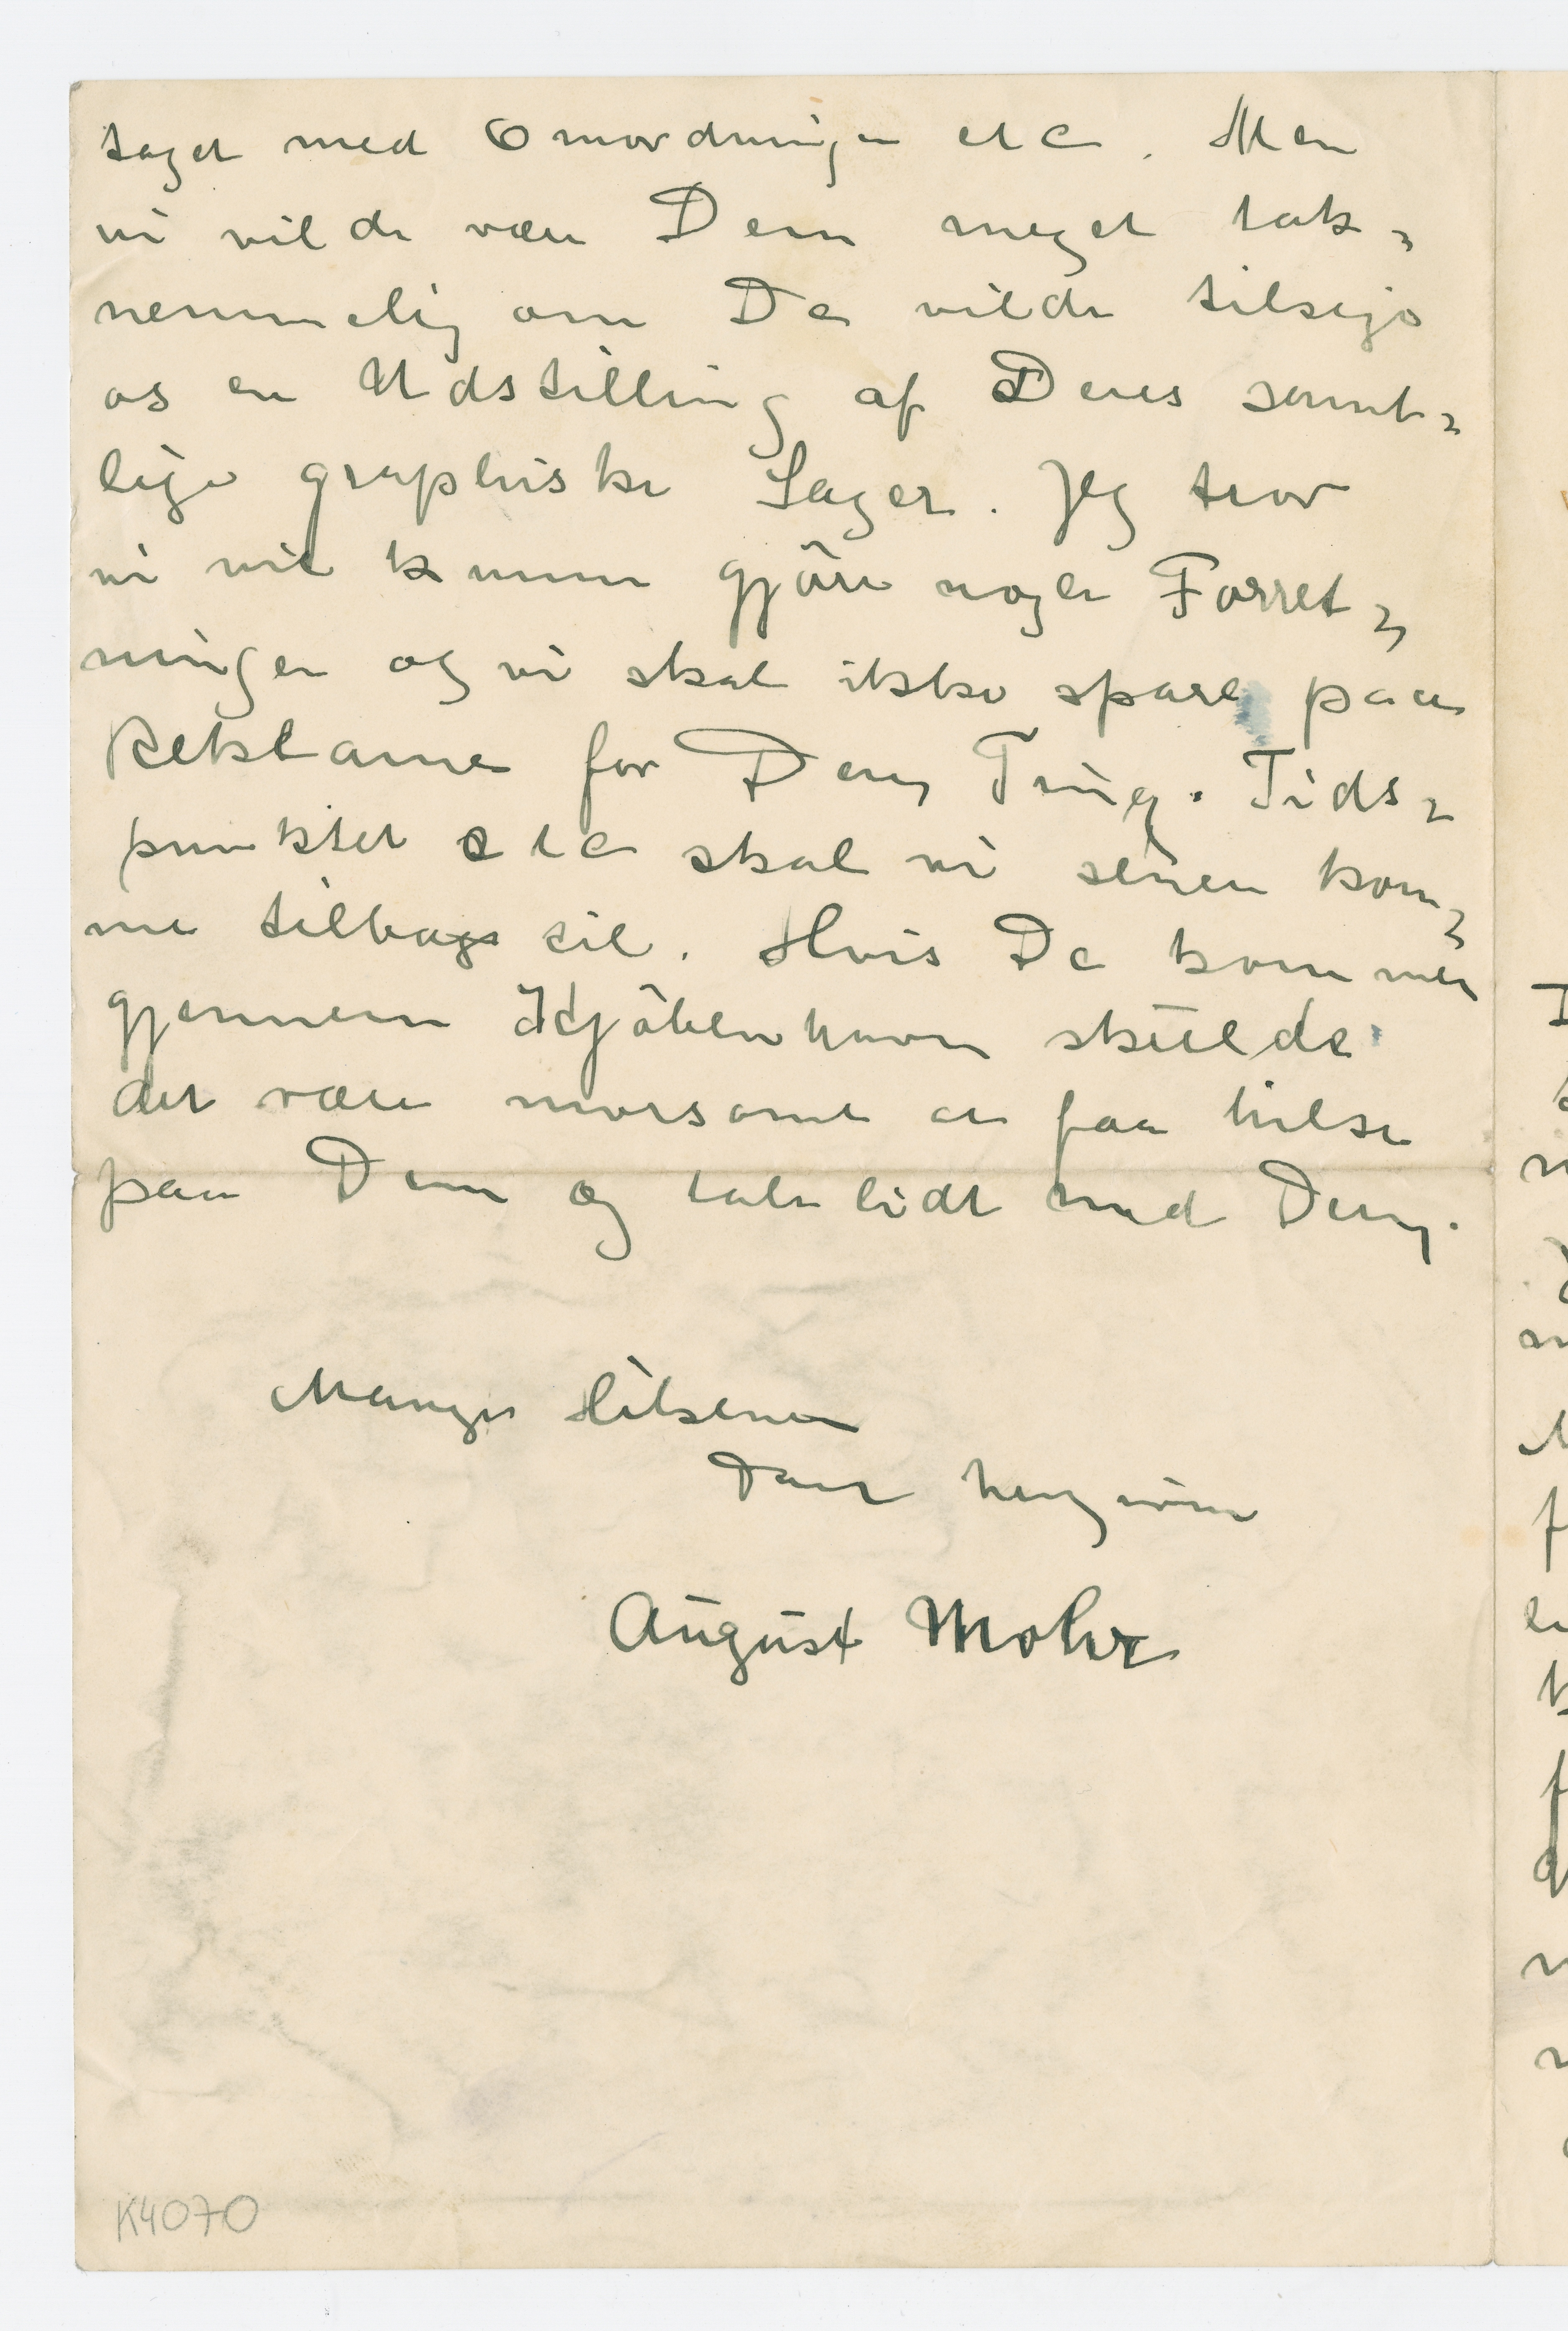 taget med Omordningen etc. Men
vi vilde være Dem meget tak=
nemmelig om De vilde tilsige
os en Udstilling af Deres samt=
lige graphiske Sager. Jeg tror
vi vil kunne gjöre nogle Forret=
ninger og vi skal ikke spare paa
Reklame for Deres Ting. Tids=
punktet etc skal vi senere kom=
me tilbage til. Hvis De kommer
gjennem Kjöbenhavn skulde
det være morsomt at faa hilse
paa Dem og tale lidt med Dem.
Mange Hilsener
Deres hengivne
August Mohr
K4070